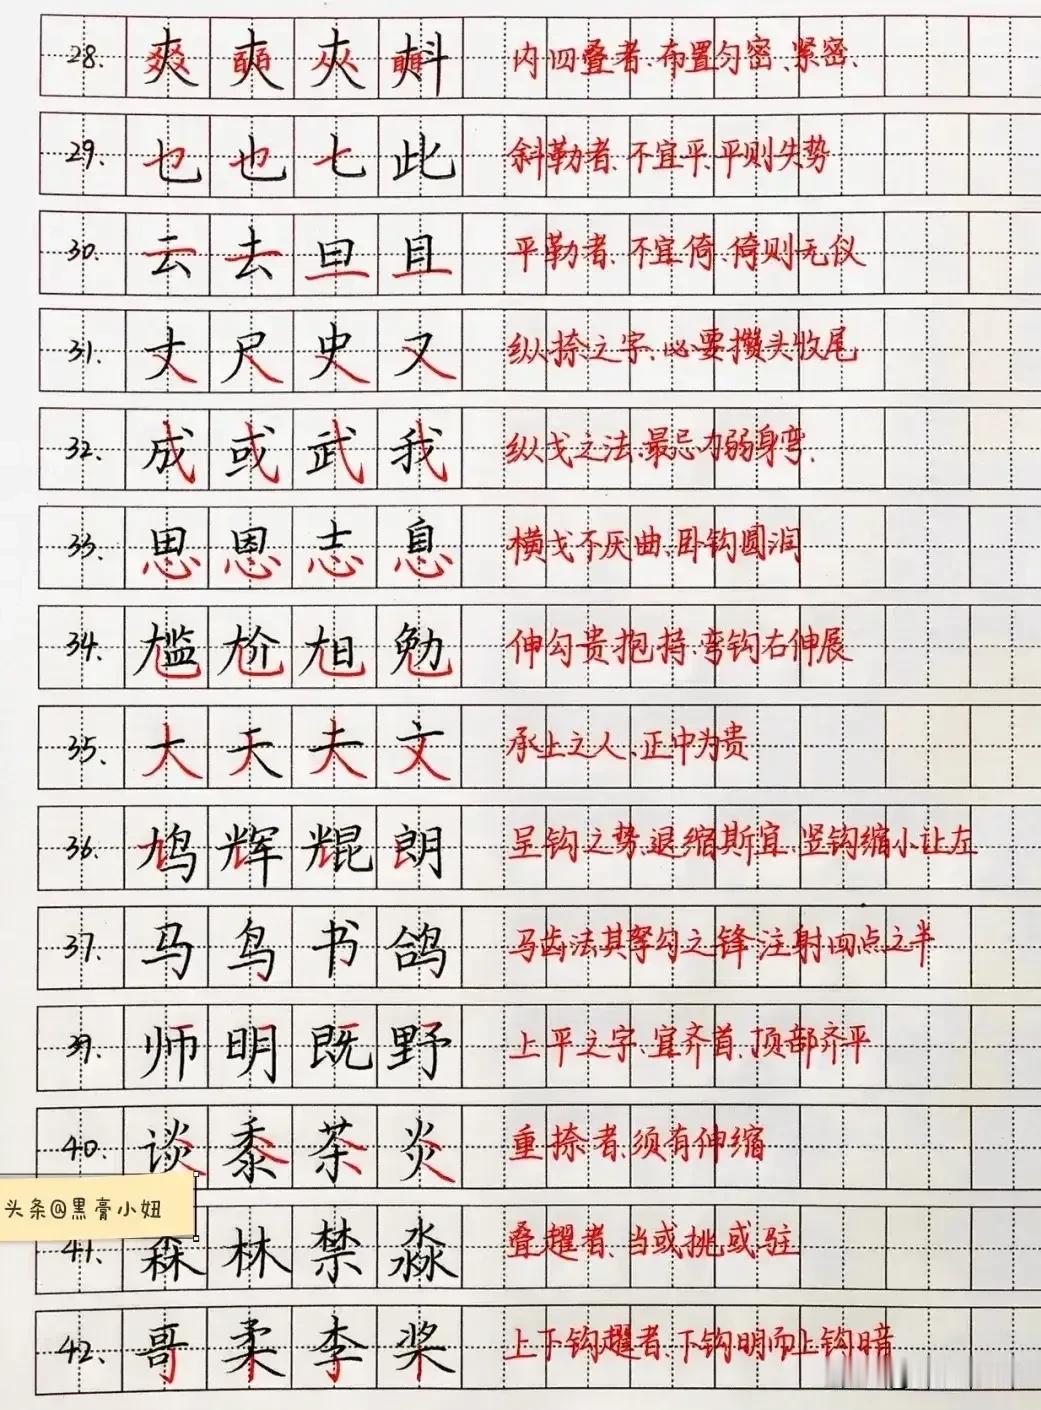 28. 爽 奭 夾 㪺 内四叠者、布置匀密、紧密、
29. 乜 也 七 此 斜勒者、不宜平、平则失势
30. 云 去 旦 且 平勒者、不宜倚、倚则无仪
31. 丈 尺 史 又 纵捺之字、必要攒头收尾
32. 成 或 武 我 纵戈之法、最忌力弱身弯、
33. 思 恩 志 息 横戈不厌曲、卧钩圆润
34. 尴 尬 旭 勉 伸勾贵抱持、弯钩右伸展
35. 大 天 夫 文 承上之人、正中为贵
36. 鸠 辉 辊 朗 呈钩之势、退缩斯宜、竖钩缩小让左
37. 马 鸟 书 鸽 马齿法其弩勾之锋、注射四点之半
39. 师 明 既 野 上平之字、宜齐首、顶部齐平
40. 谈 黍 荼 炎 重捺者、须有伸缩
头条@黑膏小妞
41. 森 林 禁 淼 叠趯者、当或挑或驻
42. 哥 柔 李 桨 上下钩趯者、下钩明而上钩暗